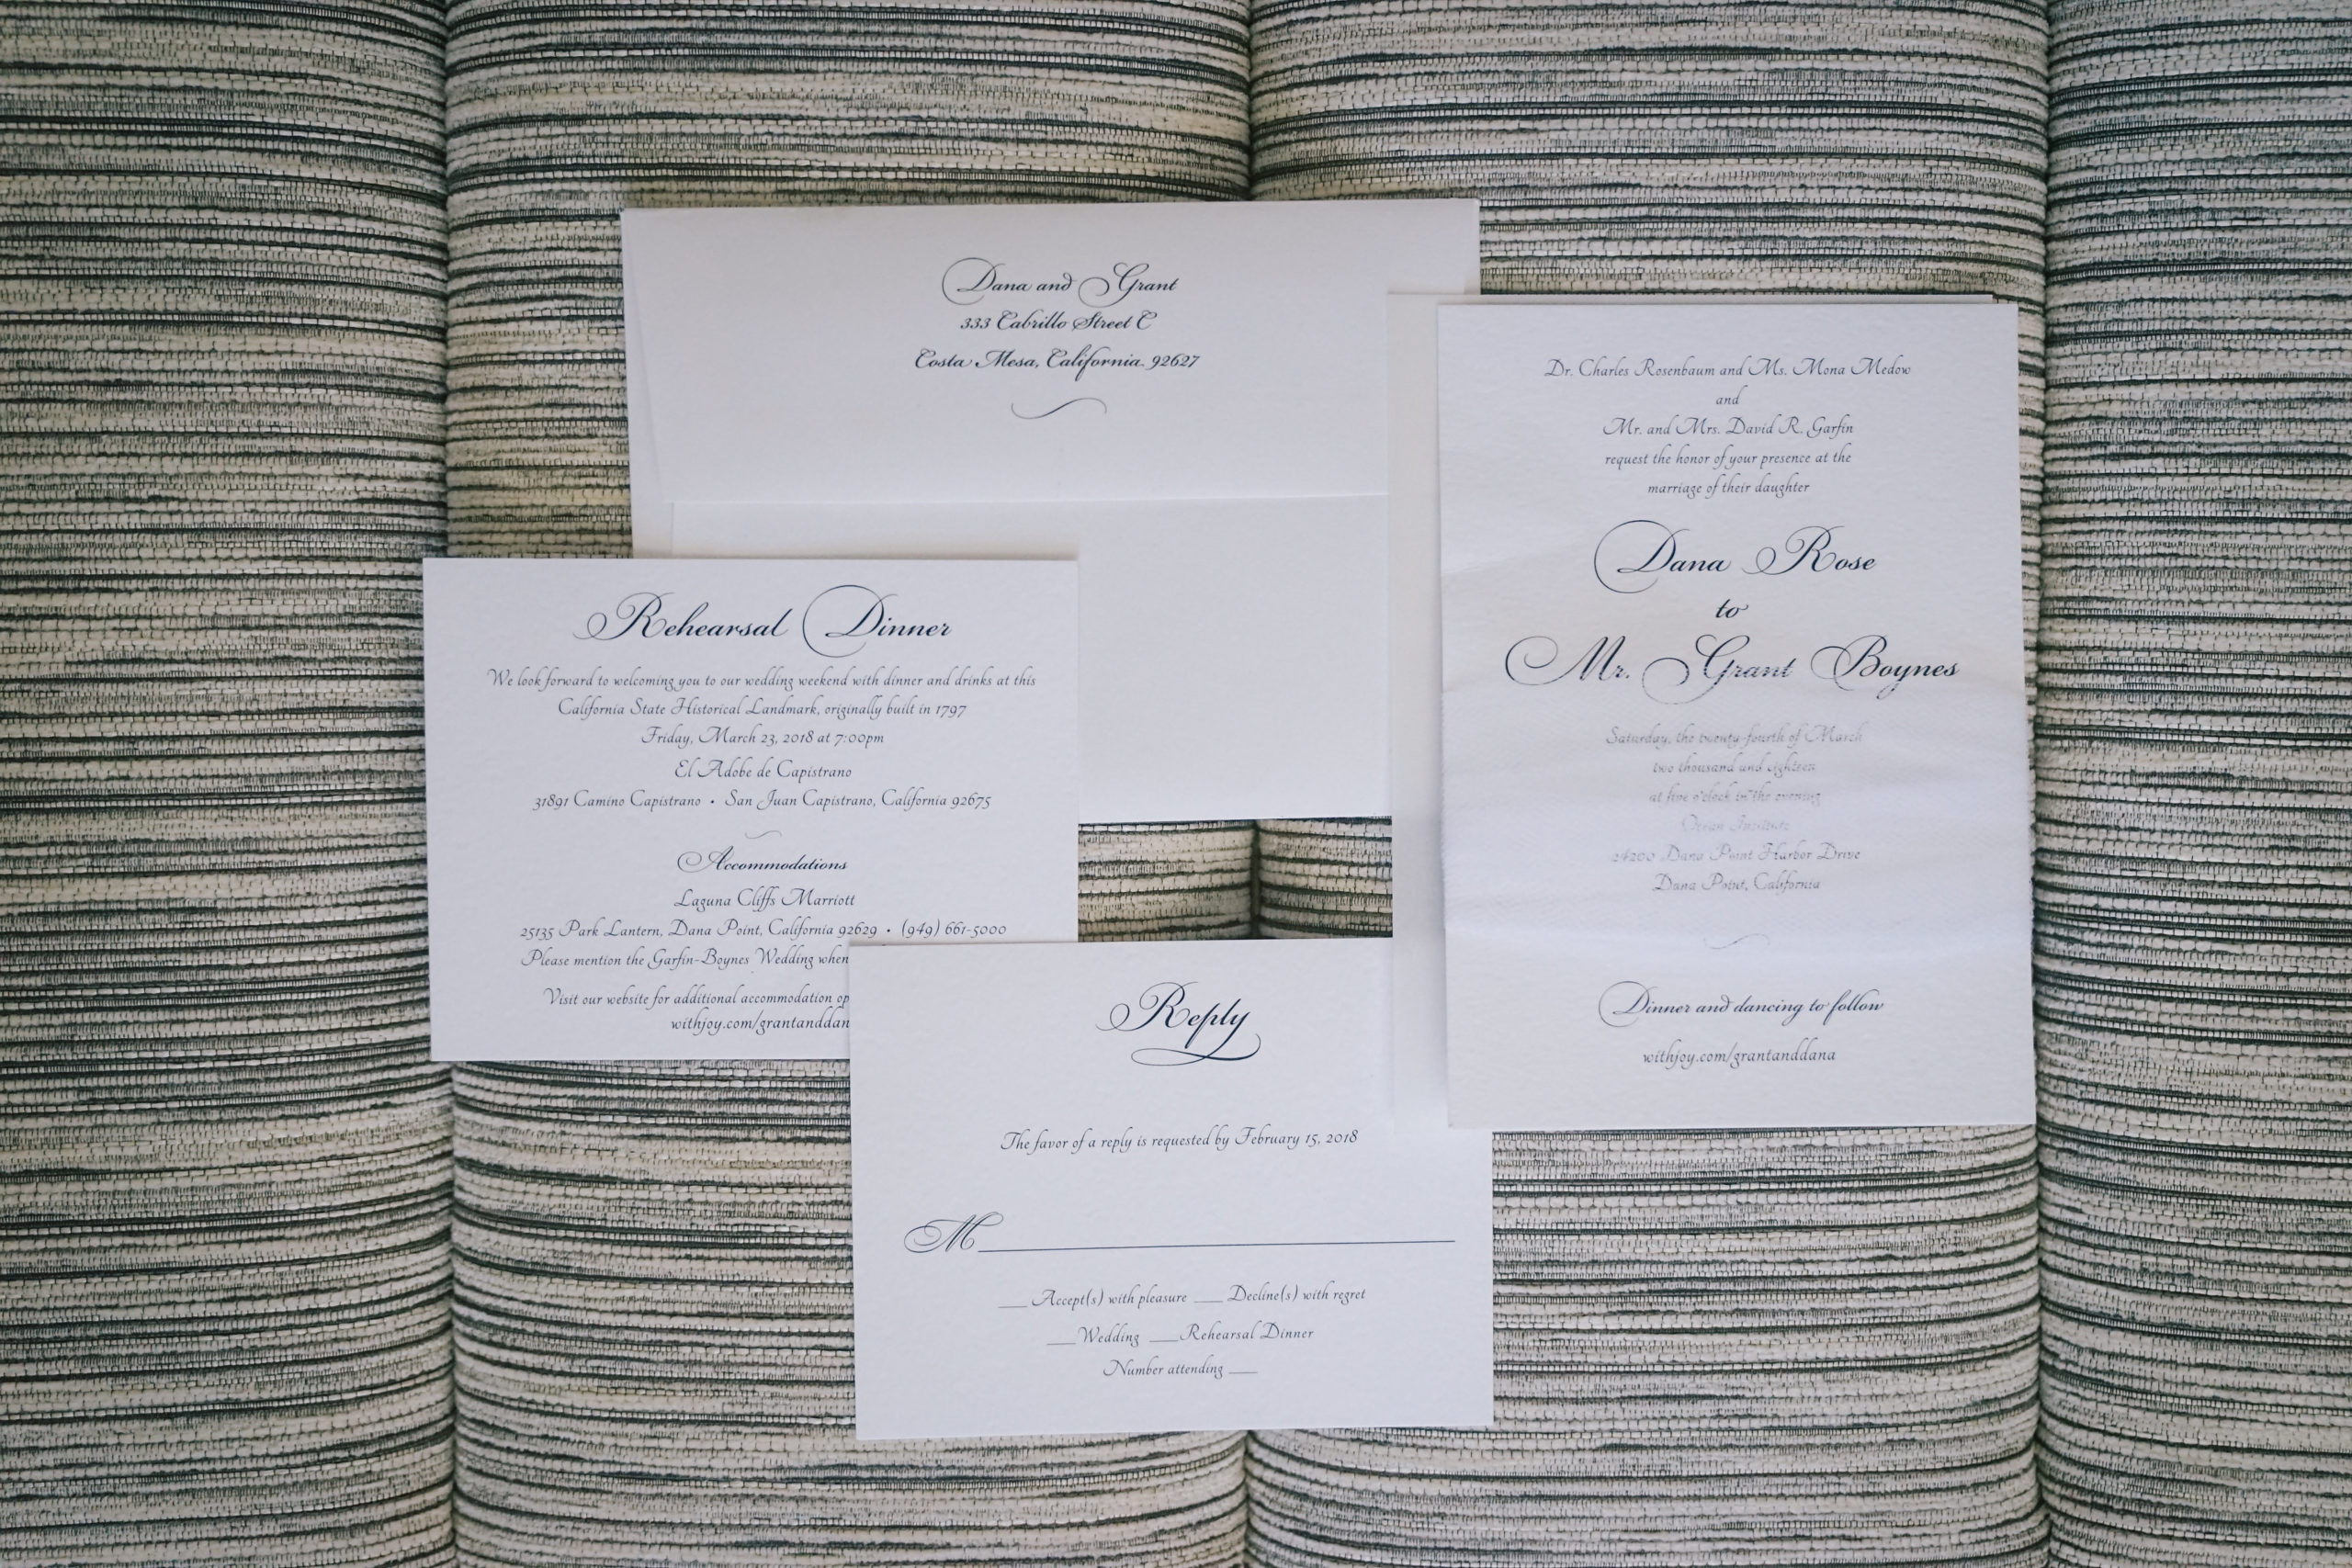 Dana and Grant
333 Cabrillo Street C
Costa Mesa, California 92627
Dr. Charles Rosenbaum and Ms. Mona Medow
and
Mr. and Mrs. David R. Garfin
request the honor of your presence at the
marriage of their daughter
Dana Rose
to
Mr. Grant Boynes
Saturday, the twenty-fourth of March
two thousand and eighteen
at five o'clock in the evening
Ocean Institute
24200 Dana Point Harbor Drive
Dana Point, California
Dinner and dancing to follow
withjoy.com/grantanddana
Rehearsal Dinner
We look forward to welcoming you to our wedding weekend with dinner and drinks at this
California State Historical Landmark, originally built in 1797
Friday, March 23, 2018 at 7:00pm
El Adobe de Capistrano
31891 Camino Capistrano • San Juan Capistrano, California 92675
Accommodations
Laguna Cliffs Marriott
25135 Park Lantern, Dana Point, California 92629 • (949) 661-5000
Please mention the Garfin-Boynes Wedding when
Visit our website for additional accommodation op
withjoy.com/grantanddan
Reply
The favor of a reply is requested by February 15, 2018
M
___ Accept(s) with pleasure ___ Decline(s) with regret
___ Wedding ___ Rehearsal Dinner
Number attending ___